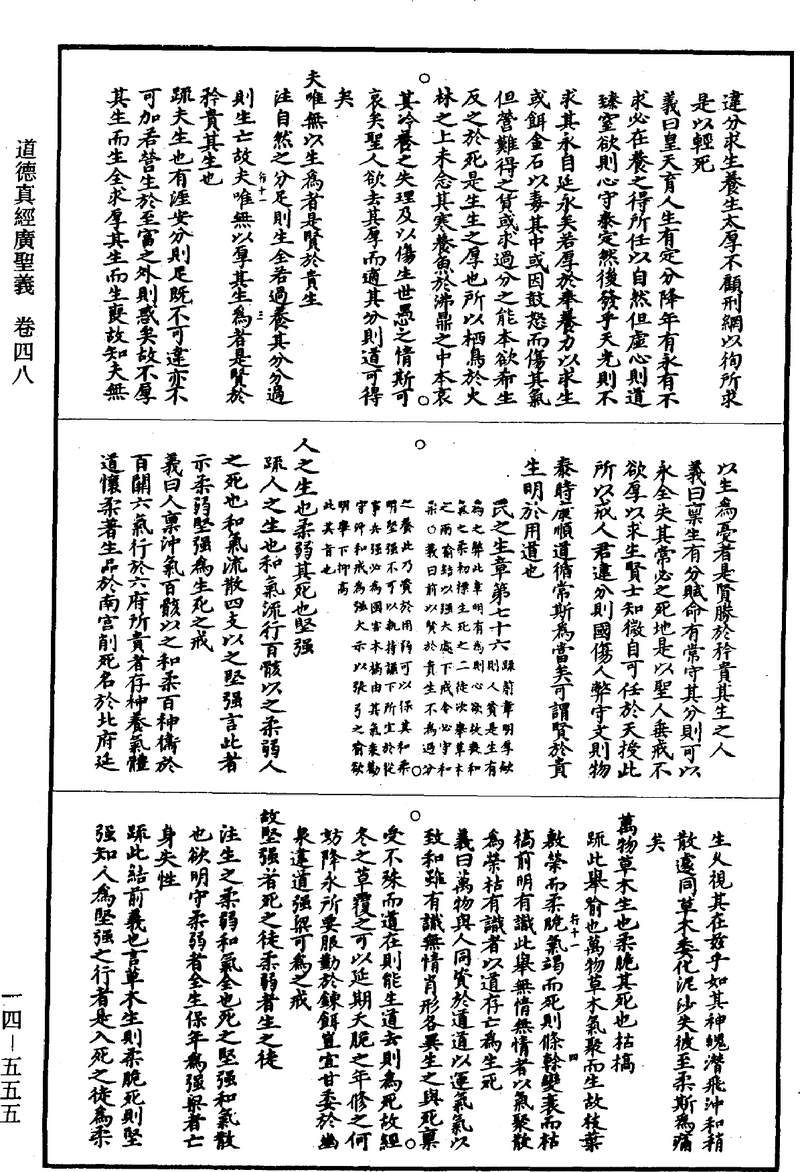 道德真經廣聖義　卷四八
一四－五五五
違分求生養生太厚不顧刑網以徇所求
是以輕死
義曰皇天育人生有定分降年有永有不
求必在養之得所任以自然但虛心則道
臻窒欲則心守泰定然後發乎天光則不
求其永自延永矣若厚於奉養力以求生
或餌金石以毒其中或因鼓怒而傷其氣
但營難得之貨或求過分之能本欲希生
反之於死是生生之厚也所以栖鳥於火
林之上未念其寒養魚於沸鼎之中本哀
其冷養之失理及以傷生世愚之情斯可
哀矣聖人欲去其厚而適其分則道可得
矣
夫唯無以生為者是賢於貴生
注自然之分足則生全若過養其分分過
則生亡故夫唯無以厚其生為者是賢於
矜貴其生也
疏夫生也有涯安分則足既不可違亦不
可加若營生於至富之外則惑矣故不厚
其生而生全求厚其生而生喪故知夫無
以生為憂者是賢勝於矜貴其生之人
義曰稟生有分賦命有常守其分則可以
永全失其常必之死地是以聖人垂戒不
欲厚以求生賢士知微自可任於天授此
所以戒人君違分則國傷人弊守文則物
泰時康順道循常斯為當矣可謂賢於貴
生明於用道也
民之生章第七十六
疏前章明厚斂
則人貧是生有
為之弊此章明有為則心欲故衆和
氣之柔初標生死之二徒次舉草木
之兩喻結以強大處下戒令必守和
柔○義曰前以賢於貴生不為過分
之養此乃貴於用弱可以保其和柔
明堅強不可以執持謙下所生於從
事兵强必為國害木橋由其氣衰勸
守沖和戒為強大示以張弓之喻欲
明舉下抑高
此其旨也
人之生也柔弱其死也堅强
疏人之生也和氣流行百骸以之柔弱人
之死也和氣流散四支以之堅强言此者
示柔弱堅强為生死之戒
義曰人稟沖氣百骸以之和柔百神衛於
百關六氣行於六府所貴者存神養氣體
道懷柔著生品於南宮削死名於北府延
生久視其在茲乎如其神魄潛飛沖和稍
散遽同草木委化泥沙失彼至柔斯為痛
矣
萬物草木生也柔脆其死也枯槁
疏此舉喻也萬物草木氣聚而生故枝葉
敷榮而柔脆氣竭而死則條幹變衰而枯
槁前明有識此舉無情無情者以氣聚散
為榮枯有識者以道存亡為生死
義曰萬物與人同資於道道以運氣氣以
致和雖有識無情肖形各異生之與死稟
受不殊而道在則能生道去則為死故經
冬之草覆之可以延期夭脆之年修之何
妨降永所要服勤於鍊餌豈宜甘委於幽
泉違道强梁可為之戒
故堅强者死之徒柔弱者生之徒
注生之柔弱和氣全也死之堅强和氣散
也欲明守柔弱者全生保年為强梁者亡
身失性
疏此結前義也言草木生則柔脆死則堅
强知人為堅强之行者是入死之徒為柔